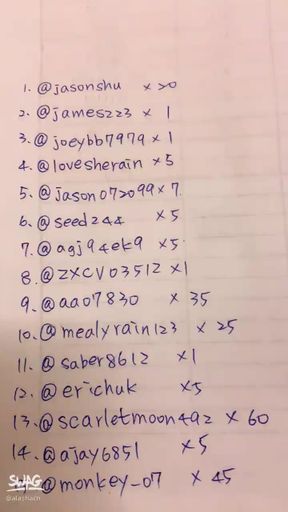 1. @jasonshu x 20
2. @james223 x 1
3. @joeybb7979 x 1
4. @lovesherain x 5
5. @jason072099 x 7
6. @seed244 x 5
7. @agj94ek9 x 5
8. @zxcv03512 x 1
9. @aa07830 x 35
10. @mealyrain123 x 25
11. @saber8612 x 1
12. @erichuk x 5
13. @scarletmoon492 x 60
14. @ajay6851 x 5
@monkey_07 x 45
SWAG